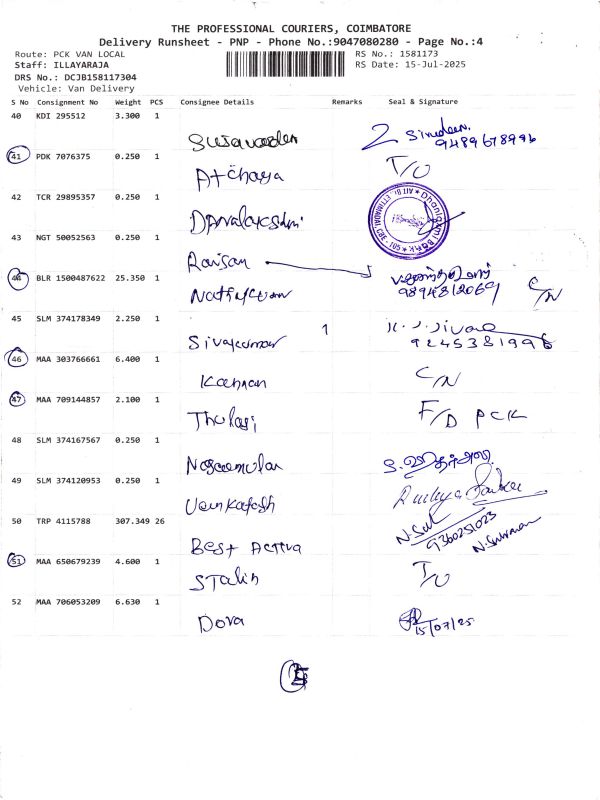 THE PROFESSIONAL COURIERS, COIMBATORE
Delivery Runsheet - PNP - Phone No.:9047080280 - Page No.:4
Route: PCK VAN LOCAL RS No.: 1581173
Staff: ILLAYARAJA RS Date: 15-Jul-2025
DRS No.: DCJB158117304
Vehicle: Van Delivery
S No Consignment No Weight PCS Consignee Details Remarks Seal & Signature
40 KDI 295512 3.300 1
9489678996
41 PDK 7076375 0.250 1 T/O
Atchaya
42 TCR 29895357 0.250 1
Dhanlaxmi Bank
43 NGT 50052563 0.250 1
44 BLR 1500487622 25.350 1
9894812069 C/N
45 SLM 374178349 2.250 1
Sivakumar 1 9245381996
46 MAA 303766661 6.400 1 C/N
Kannan
47 MAA 709144857 2.100 1 F/D PCK
Thulasi
48 SLM 374167567 0.250 1
49 SLM 374120953 0.250 1
Venkatesh
50 TRP 4115788 307.349 26 9360251023
Best Activa
51 MAA 650679239 4.600 1 T/O
Stalin
52 MAA 706053209 6.630 1
Dora 15/07/25